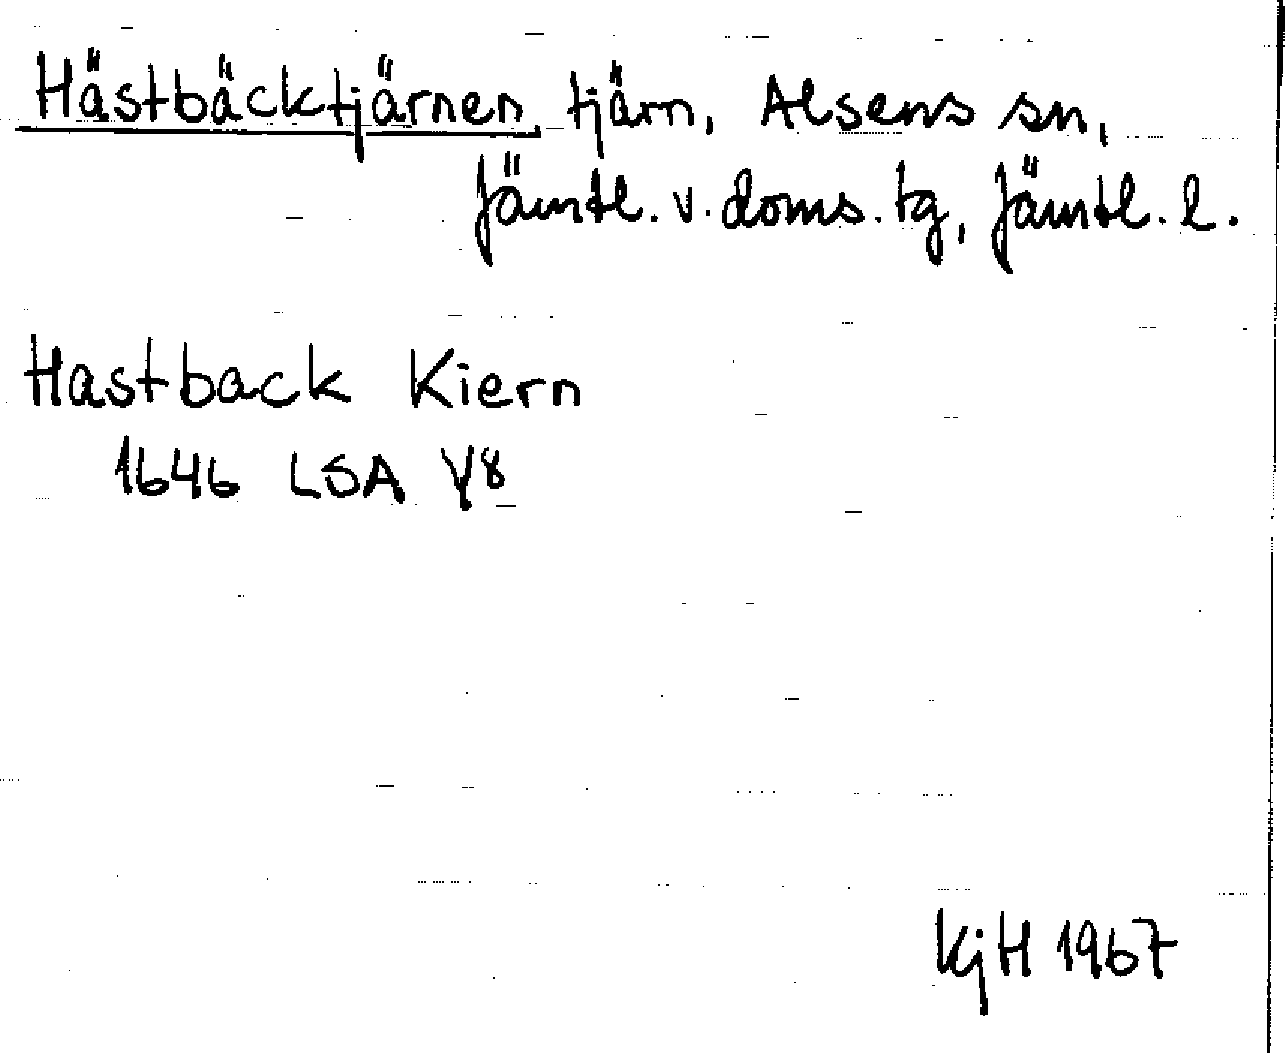 Hästbäcktjärnen, tjärn, Alsens sn,
Jämtl. v. doms. tg, Jämtl. l.
Hastback Kiern
1646 LSA Y8
KjH 1967